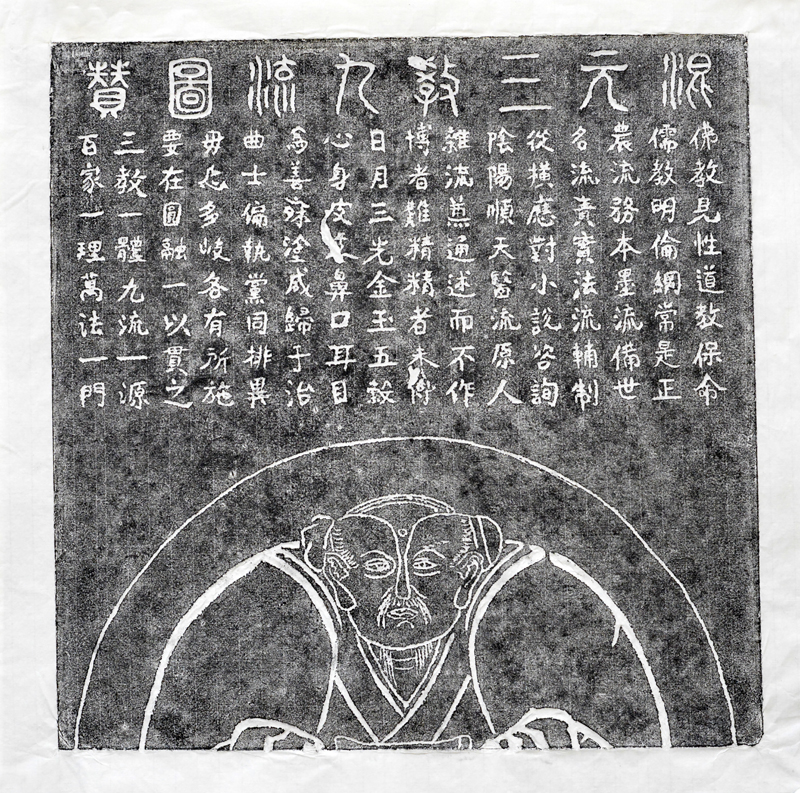 混元三教九流圖贊
佛教見性道教保命
儒教明倫綱常是正
農流務本墨流備世
名流責實法流輔制
從橫應對小說咨詢
陰陽順天醫流原人
雜流兼通述而不作
博者難精精者未博
日月三光金玉五穀
心身皮鼻口耳目
為善殊塗咸歸于治
曲士偏執黨同排異
毋多岐各有所施
要在圓融一以貫之
三教一體九流一源
百家一理萬法一門